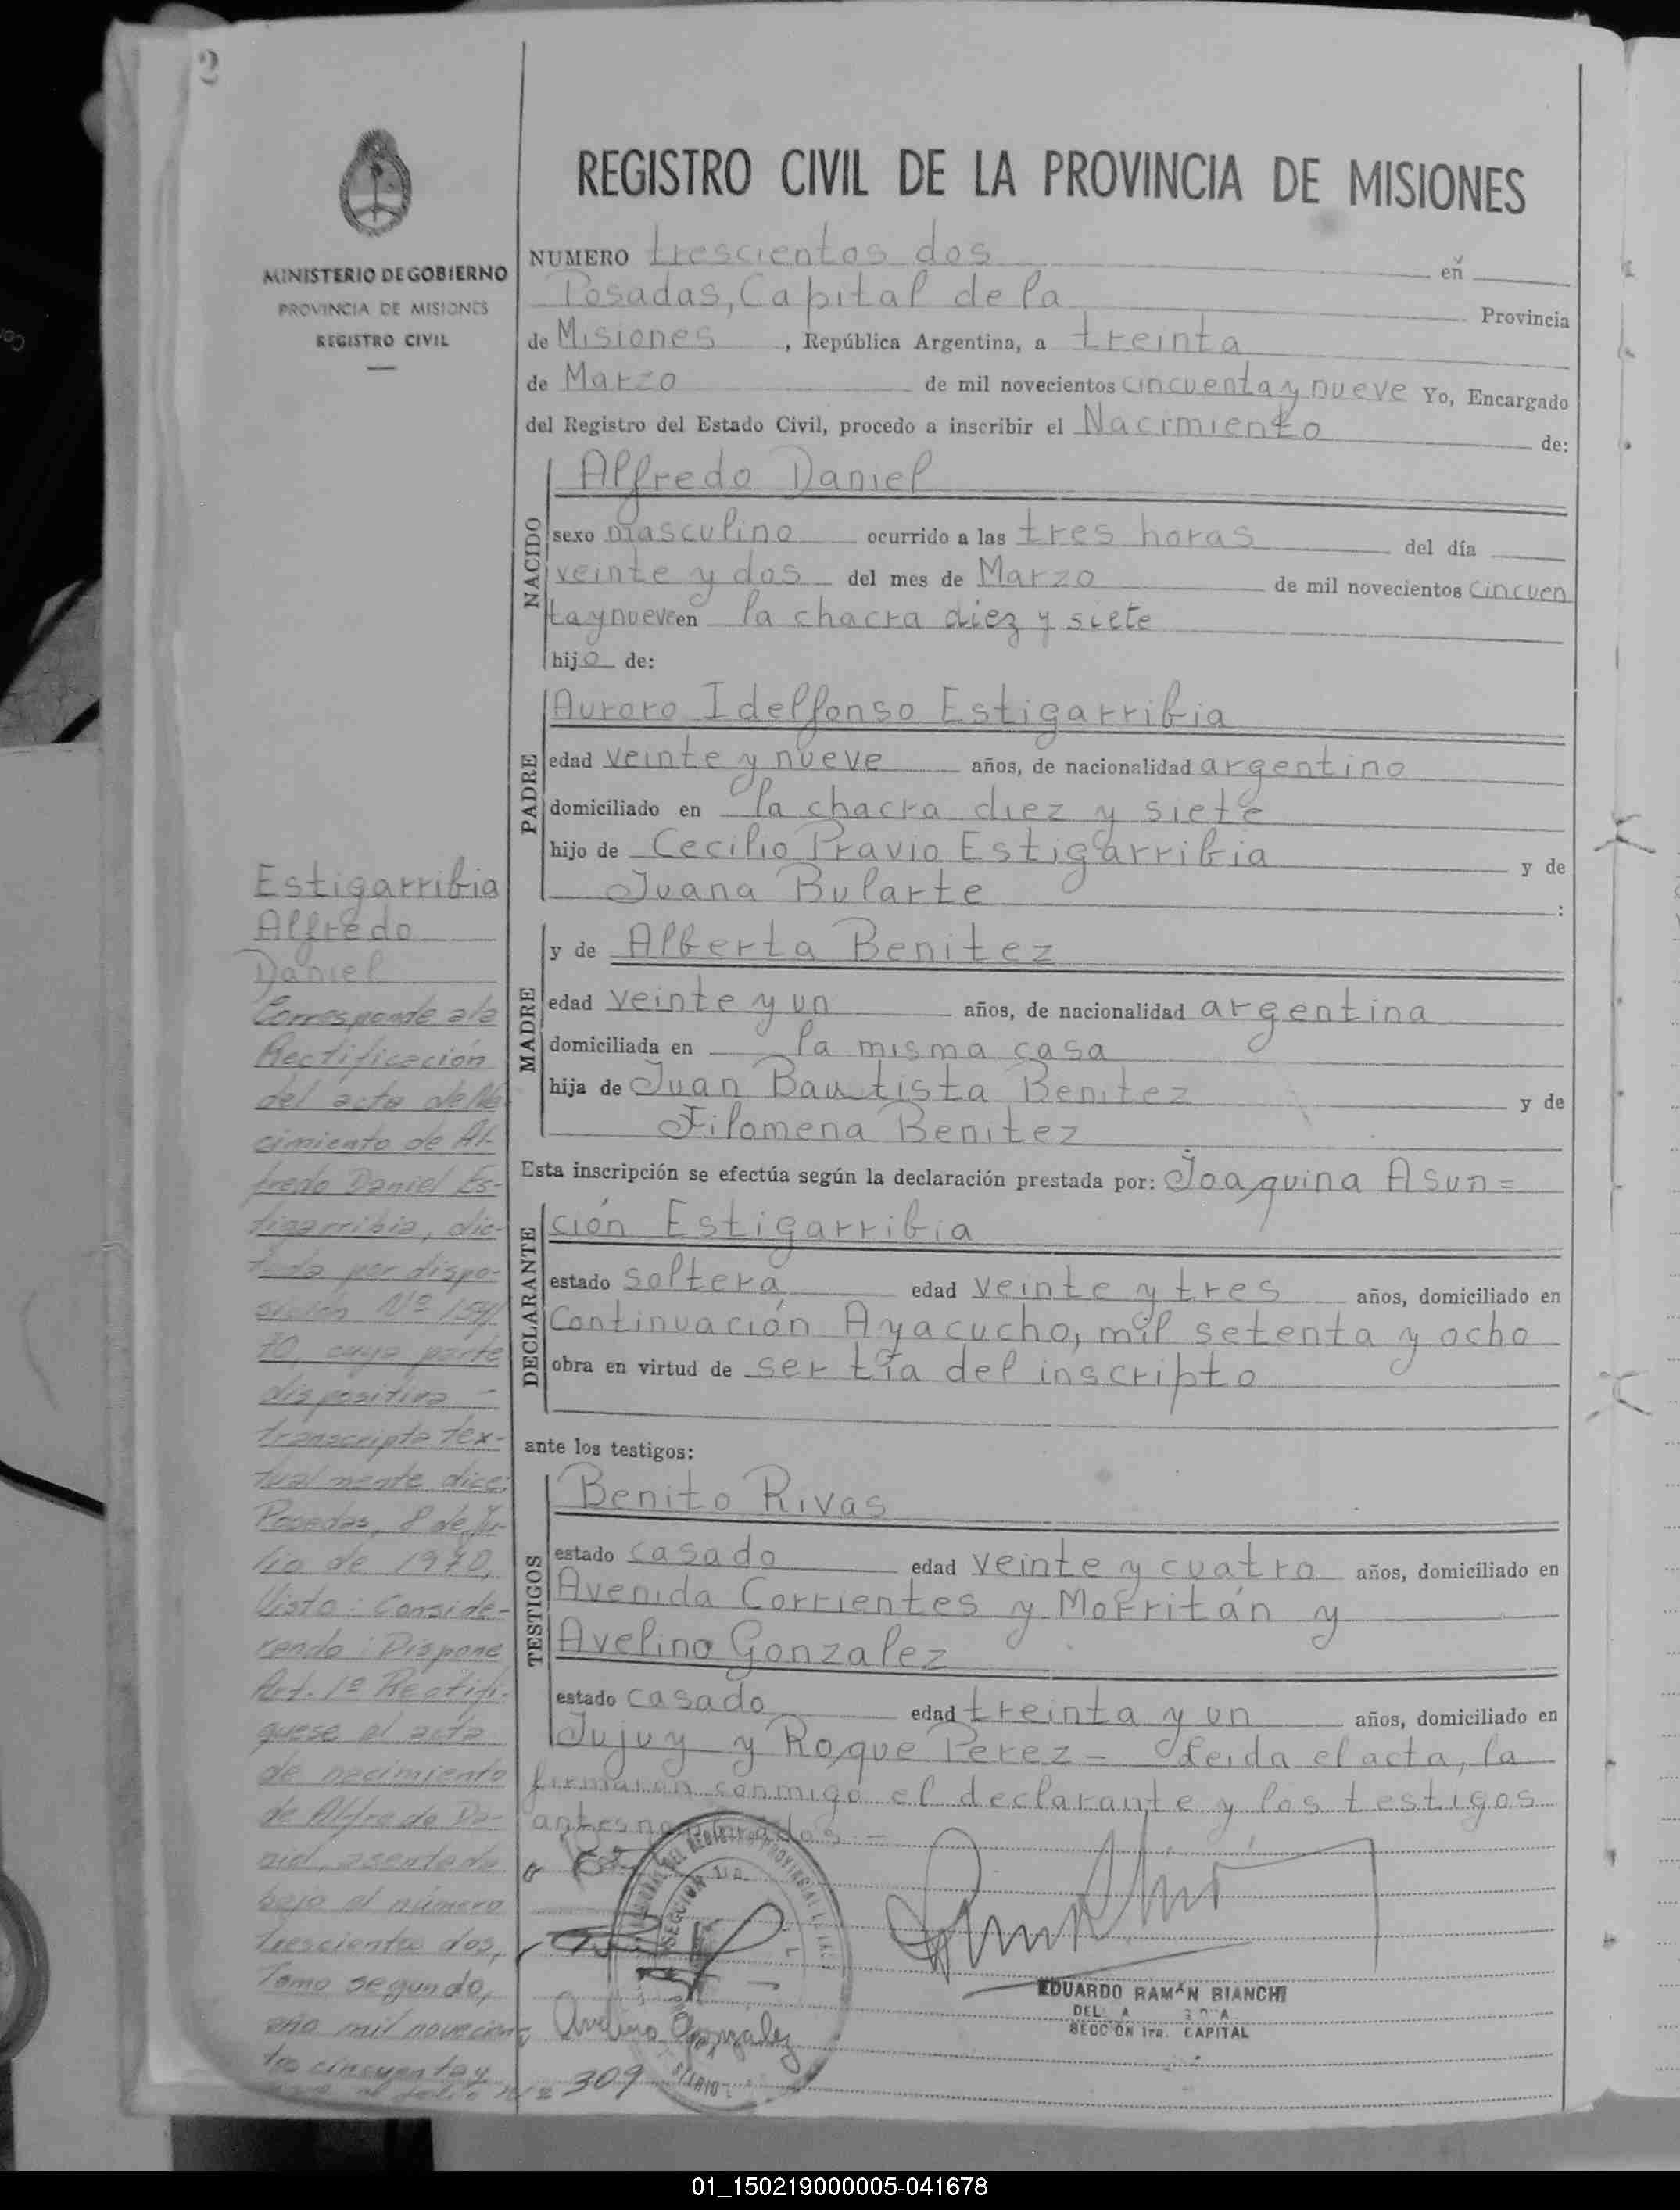 2
MINISTERIO DE GOBIERNO
PROVINCIA DE MISIONES
REGISTRO CIVIL
REGISTRO CIVIL DE LA PROVINCIA DE MISIONES
NUMERO trescientos dos en
Posadas, Capital de la Provincia
de Misiones, República Argentina, a treinta
de Marzo de mil novecientos cincuenta y nueve Yo, Encargado
del Registro del Estado Civil, procedo a inscribir el Nacimiento de:
NACIDO
Alfredo Daniel
sexo masculino ocurrido a las tres horas del día
veinte y dos del mes de Marzo de mil novecientos cincuen
ta y nueve en la chacra diez y siete
hijo de:
PADRE
Auroro Idelfonso Estigarribia
edad veinte y nueve años, de nacionalidad argentino
domiciliado en la chacra diez y siete
hijo de Cecilio Pravio Estigarribia y de
Juana Bularte :
MADRE
y de Alberta Benitez
edad veinte y un años, de nacionalidad argentina
domiciliada en la misma casa
hija de Juan Bautista Benitez y de
Filomena Benitez
Esta inscripción se efectúa según la declaración prestada por: Joaquina Asun=
DECLARANTE
ción Estigarribia
estado soltera edad veinte y tres años, domiciliado en
Continuación Ayacucho, mil setenta y ocho
obra en virtud de ser tía del inscripto
ante los testigos:
TESTIGOS
Benito Rivas
estado casado edad veinte y cuatro años, domiciliado en
Avenida Corrientes y Morritán y
Avelino Gonzalez
estado casado edad treinta y un años, domiciliado en
Jujuy y Roque Perez = Leida el acta, la
firmaran conmigo el declarante y los testigos
antes
Avelino Gonzalez
EDUARDO RAMON BIANCHI
SECCION 1ra. CAPITAL
Estigarribia
Alfredo
Daniel
Corresponde a la
Rectificación
del acto de Na
cimiento de Al-
fredo Daniel Es-
tigarribia, dic-
tada por dispo-
sición Nº 154/
70, cuya parte
dispositiva -
transcripta tex-
tualmente dice:
Posadas, 8 de Ju-
lio de 1970,
Visto: Conside-
rando: Dispone
Art. 1º Rectifí-
quese el acta
de nacimiento
de Alfredo Da-
niel, asentada
bajo el número
trescientos dos,
Tomo segundo,
año mil novecien
tos cincuenta y
309
01_150219000005-041678